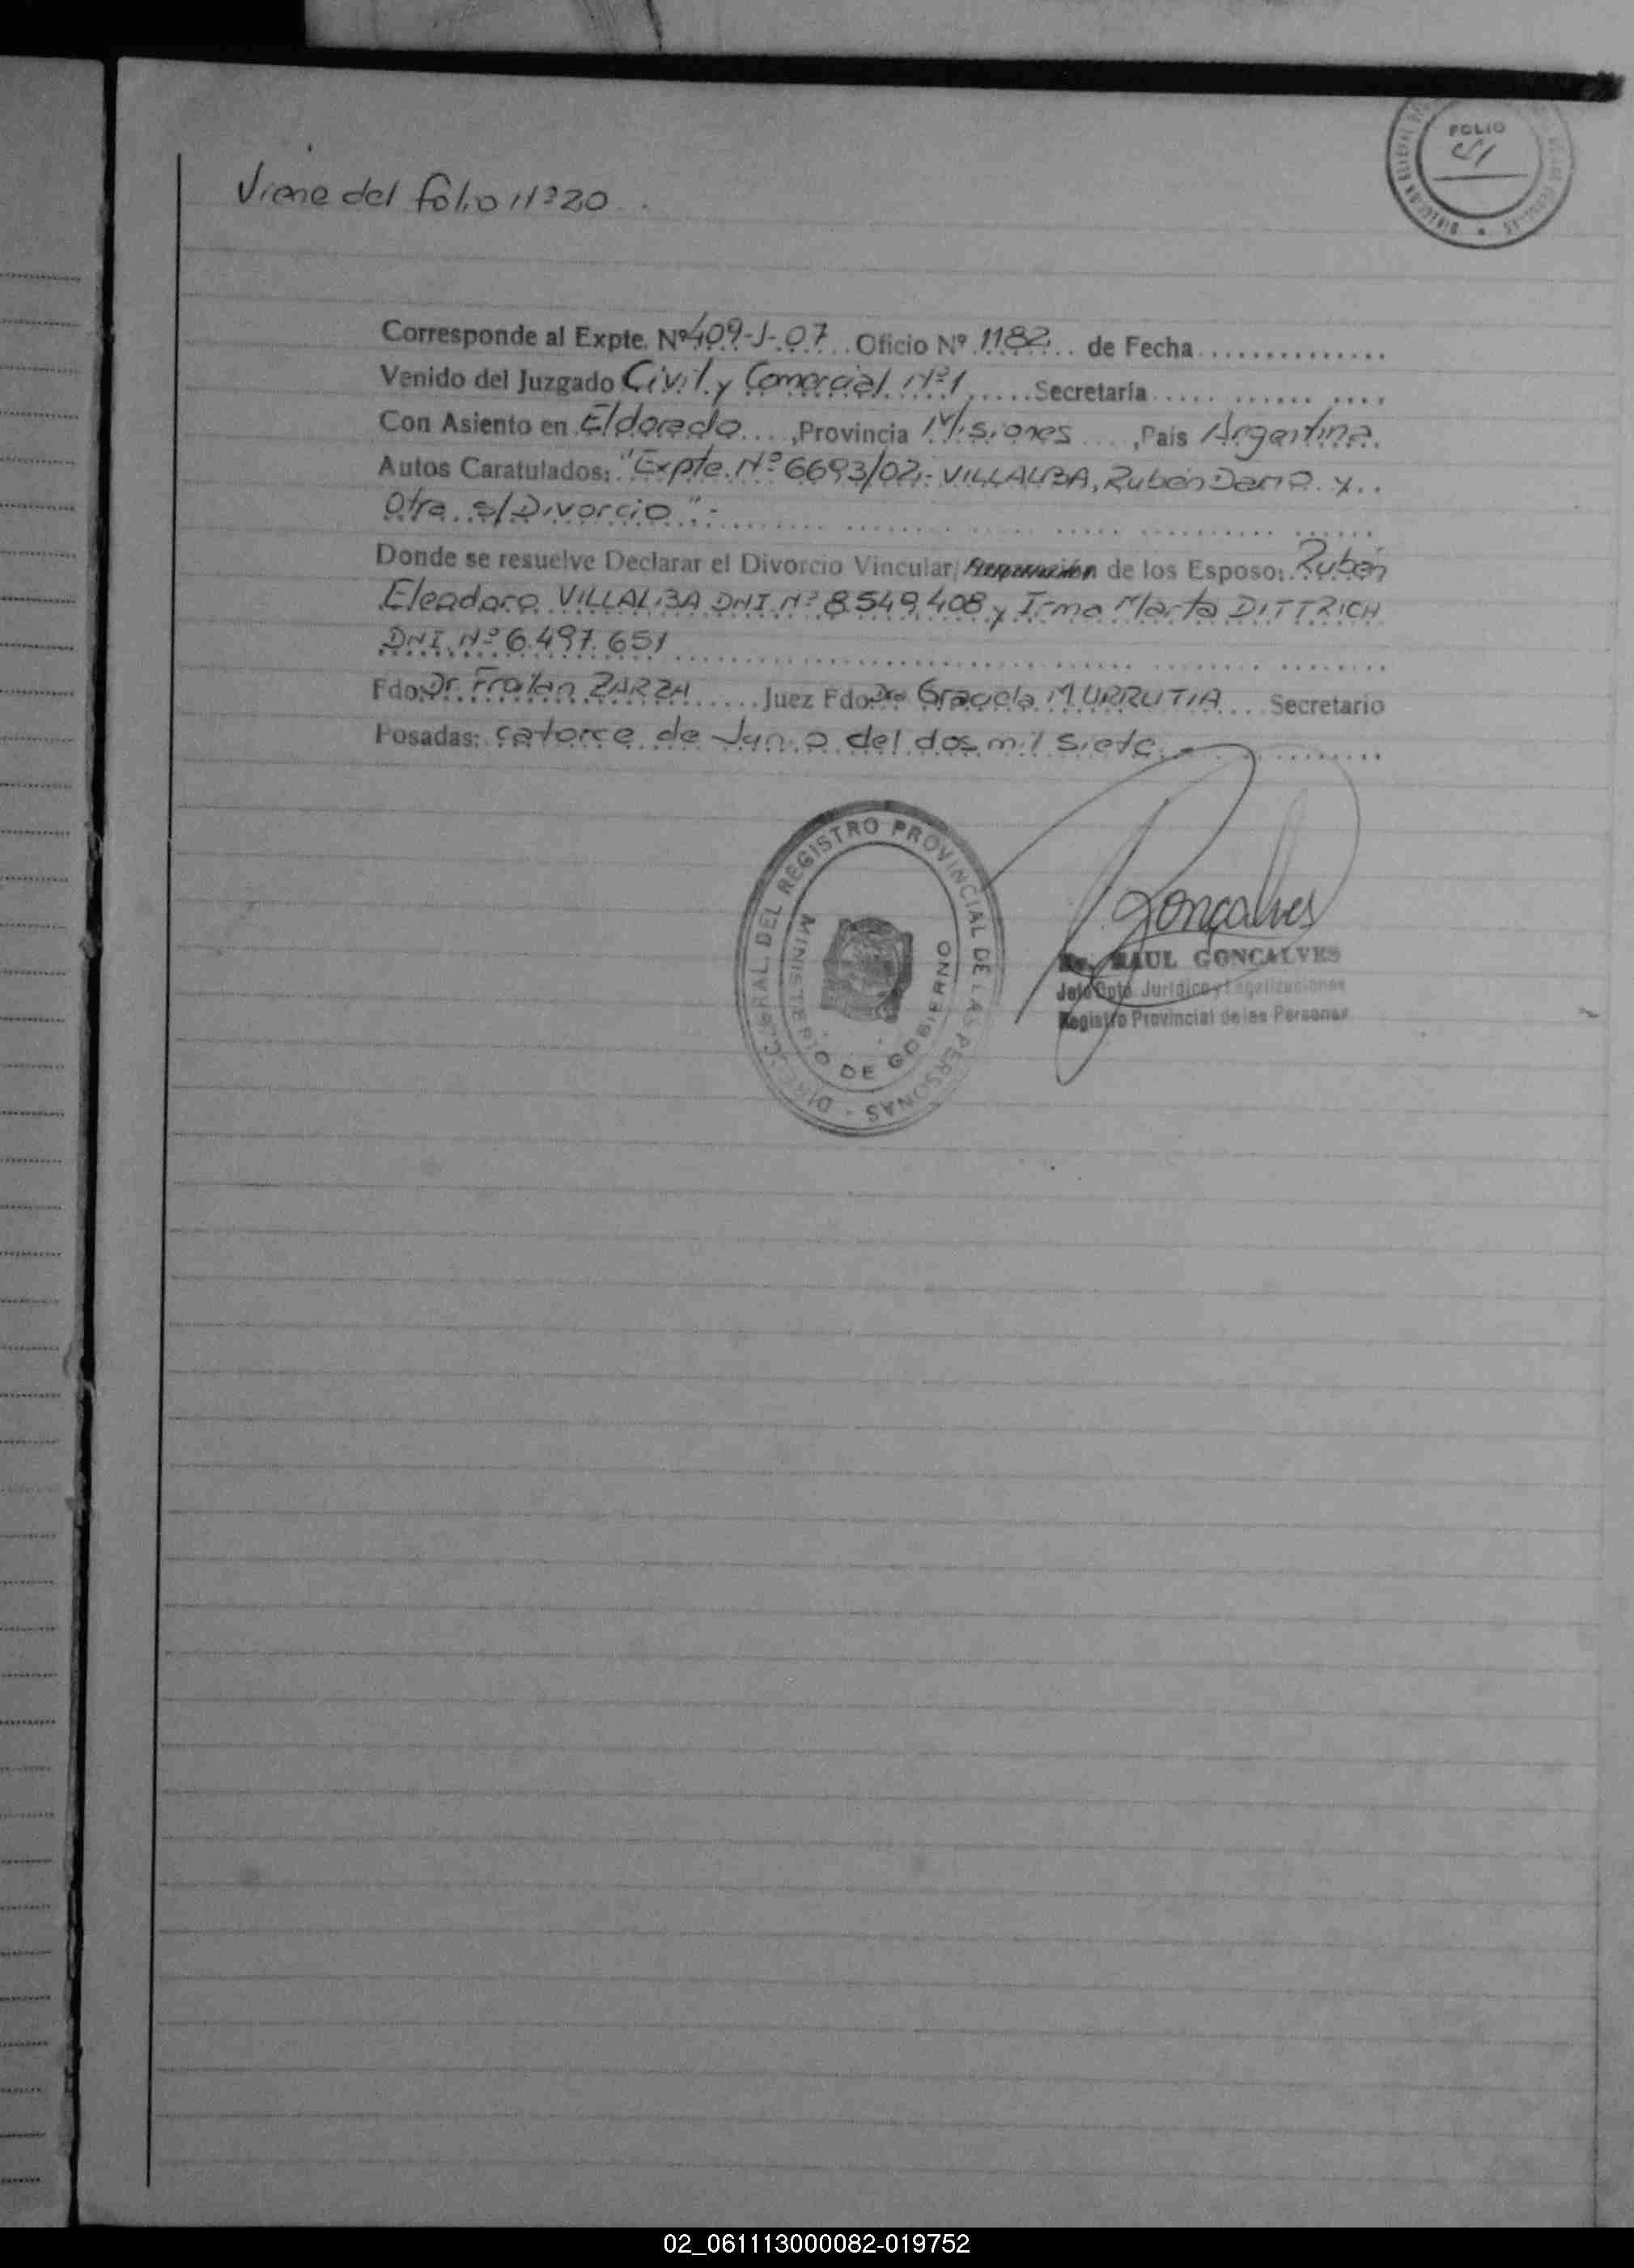 FOLIO
21
Viene del folio Nº 20
Corresponde al Expte. Nº 409-J-07 Oficio Nº 1182 de Fecha
Venido del Juzgado Civil y Comercial Nº 1 Secretaría
Con Asiento en Eldorado, Provincia Misiones, País Argentina.
Autos Caratulados: "Expte. Nº 6693/02,- VILLALBA, Rubén Dario y
Otra s/Divorcio".-
Donde se resuelve Declarar el Divorcio Vincular/ de los Esposo: Rubén
Eleodoro VILLALBA DNI Nº 8.549.408 y Irma Marta DITTRICH
DNI. Nº 6.497.651
Fdo: Dr. Froilan ZARZA Juez Fdo: Dra Graciela M URRUTIA Secretario
Posadas: catorce de Junio del dos mil siete.-
DIRECC. GRAL. DEL REGISTRO PROVINCIAL DE LAS PERSONAS -
MINISTERIO DE GOBIERNO
Gonçalves
Dr. RAUL GONCALVES
Jefe Dpto. Jurídico y Legalizaciones
Registro Provincial de las Personas
02_061113000082-019752